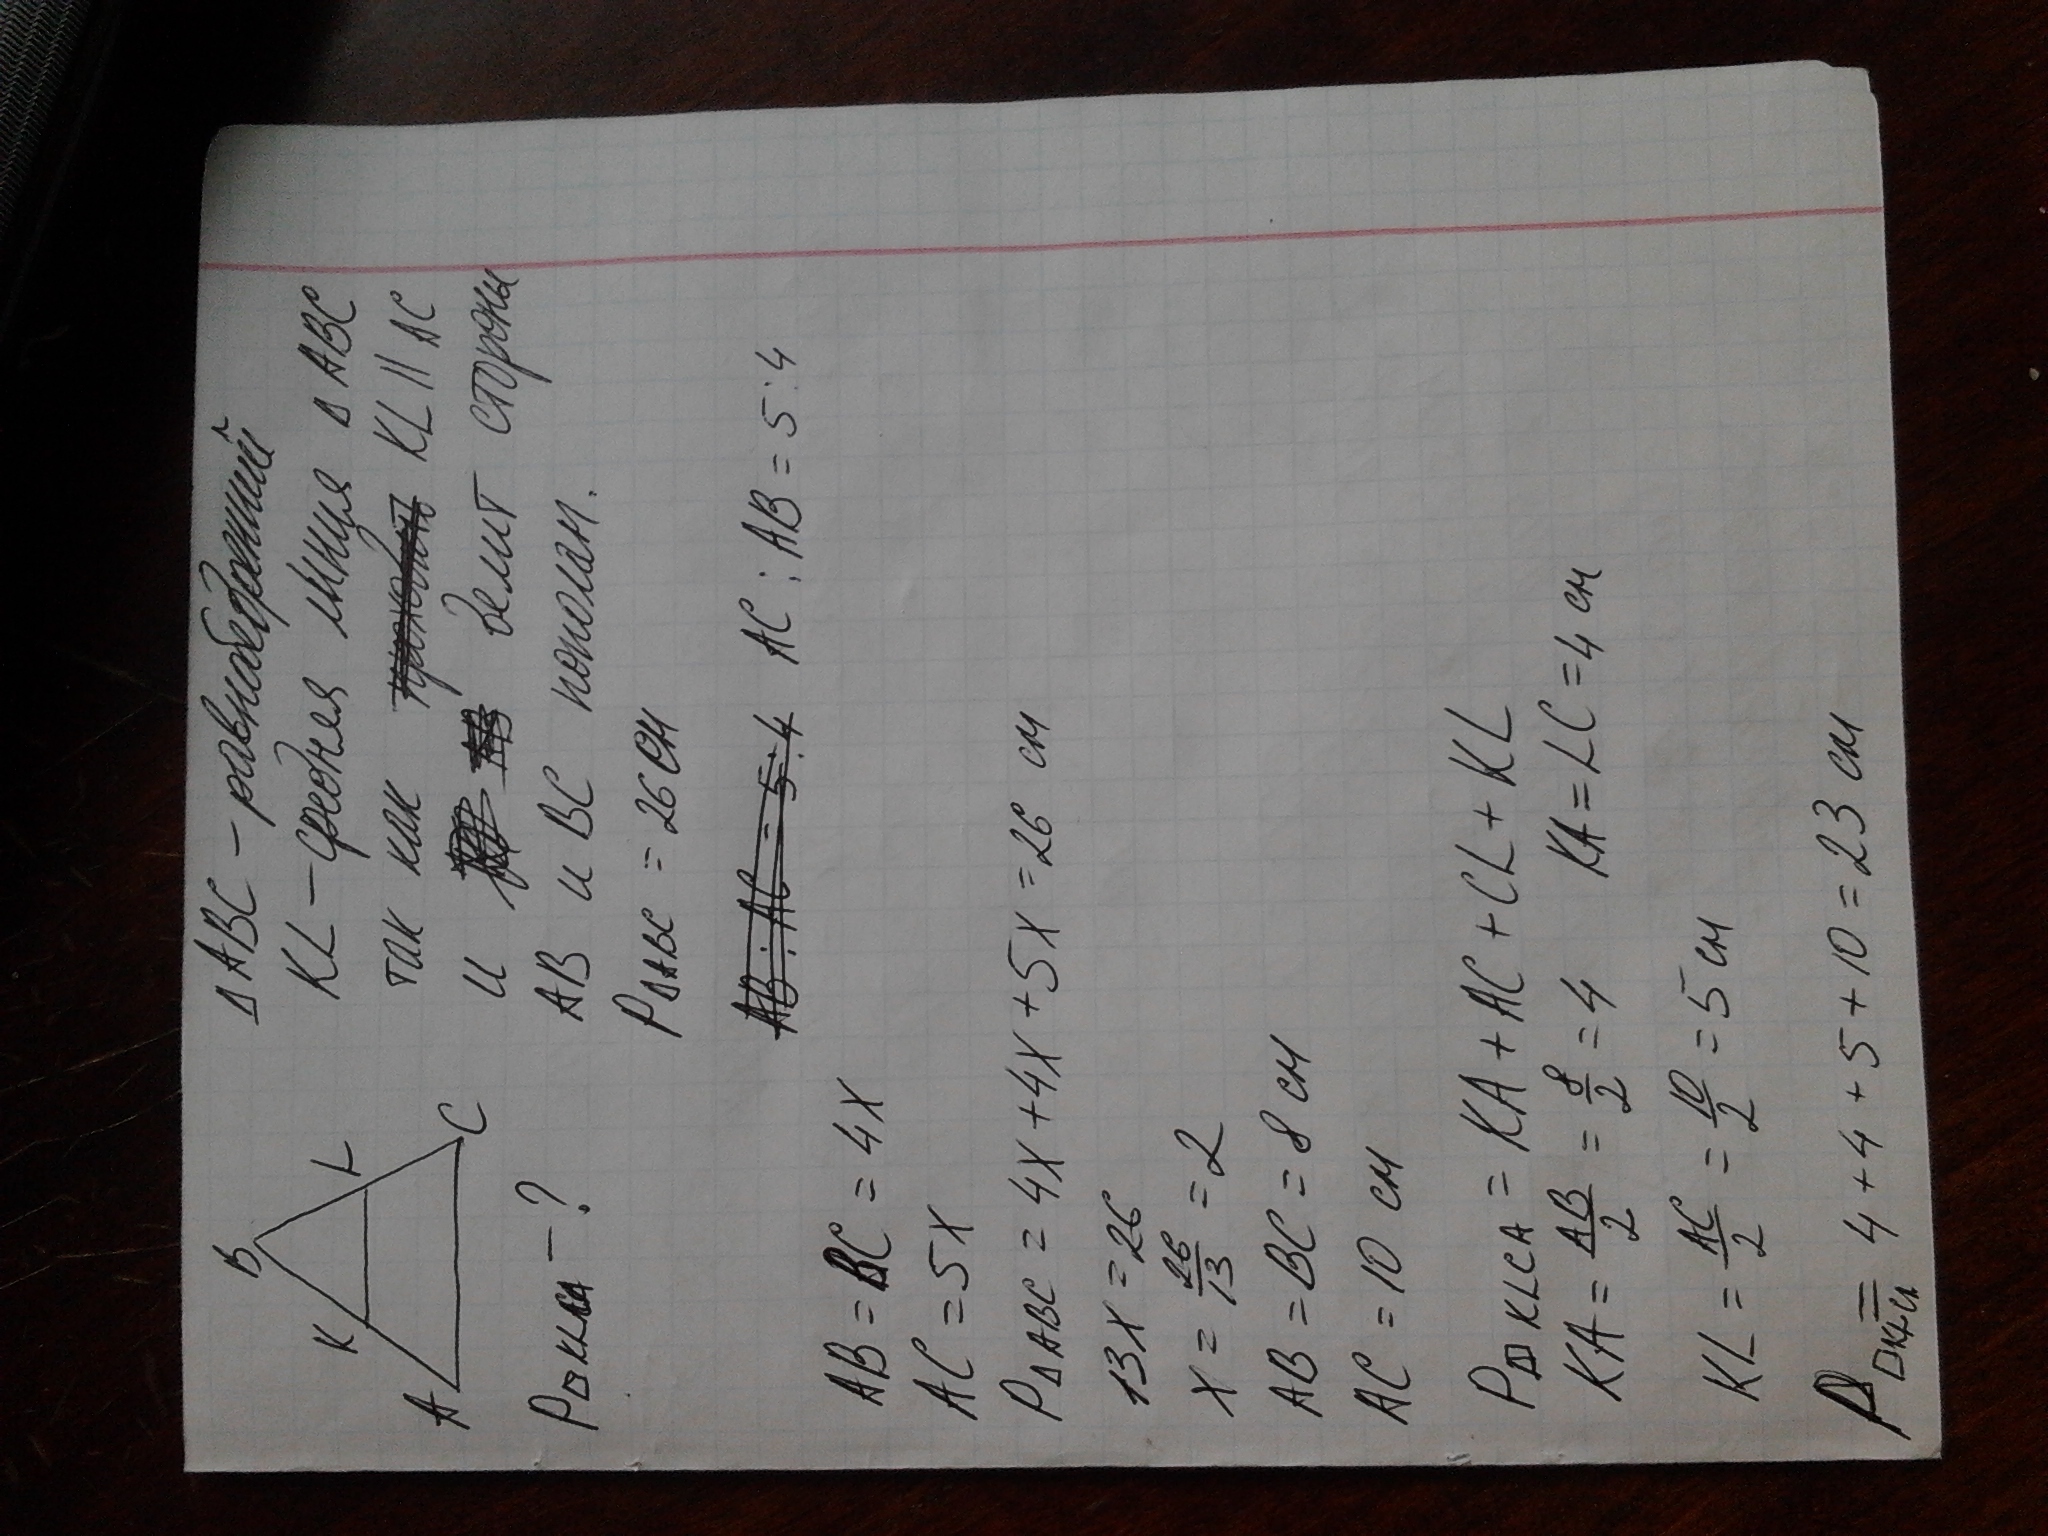 ∆ABC – равнобедренный
KL – средняя линия ∆ABC
так как KL || AC
и делит стороны
AB и BC пополам.
B
K L
A C
P▱KLCA – ?
P∆ABC = 26 см
AB : AC = 5:4 AC : AB = 5:4
AB = BC = 4x
AC = 5x
P∆ABC = 4x + 4x + 5x = 26 см
13x = 26
x = 26/13 = 2
AB = BC = 8 см
AC = 10 см
P▱KLCA = KA + AC + CL + KL
KA = AB/2 = 8/2 = 4 KA = LC = 4 см
KL = AC/2 = 10/2 = 5 см
P▱KLCA = 4 + 4 + 5 + 10 = 23 см